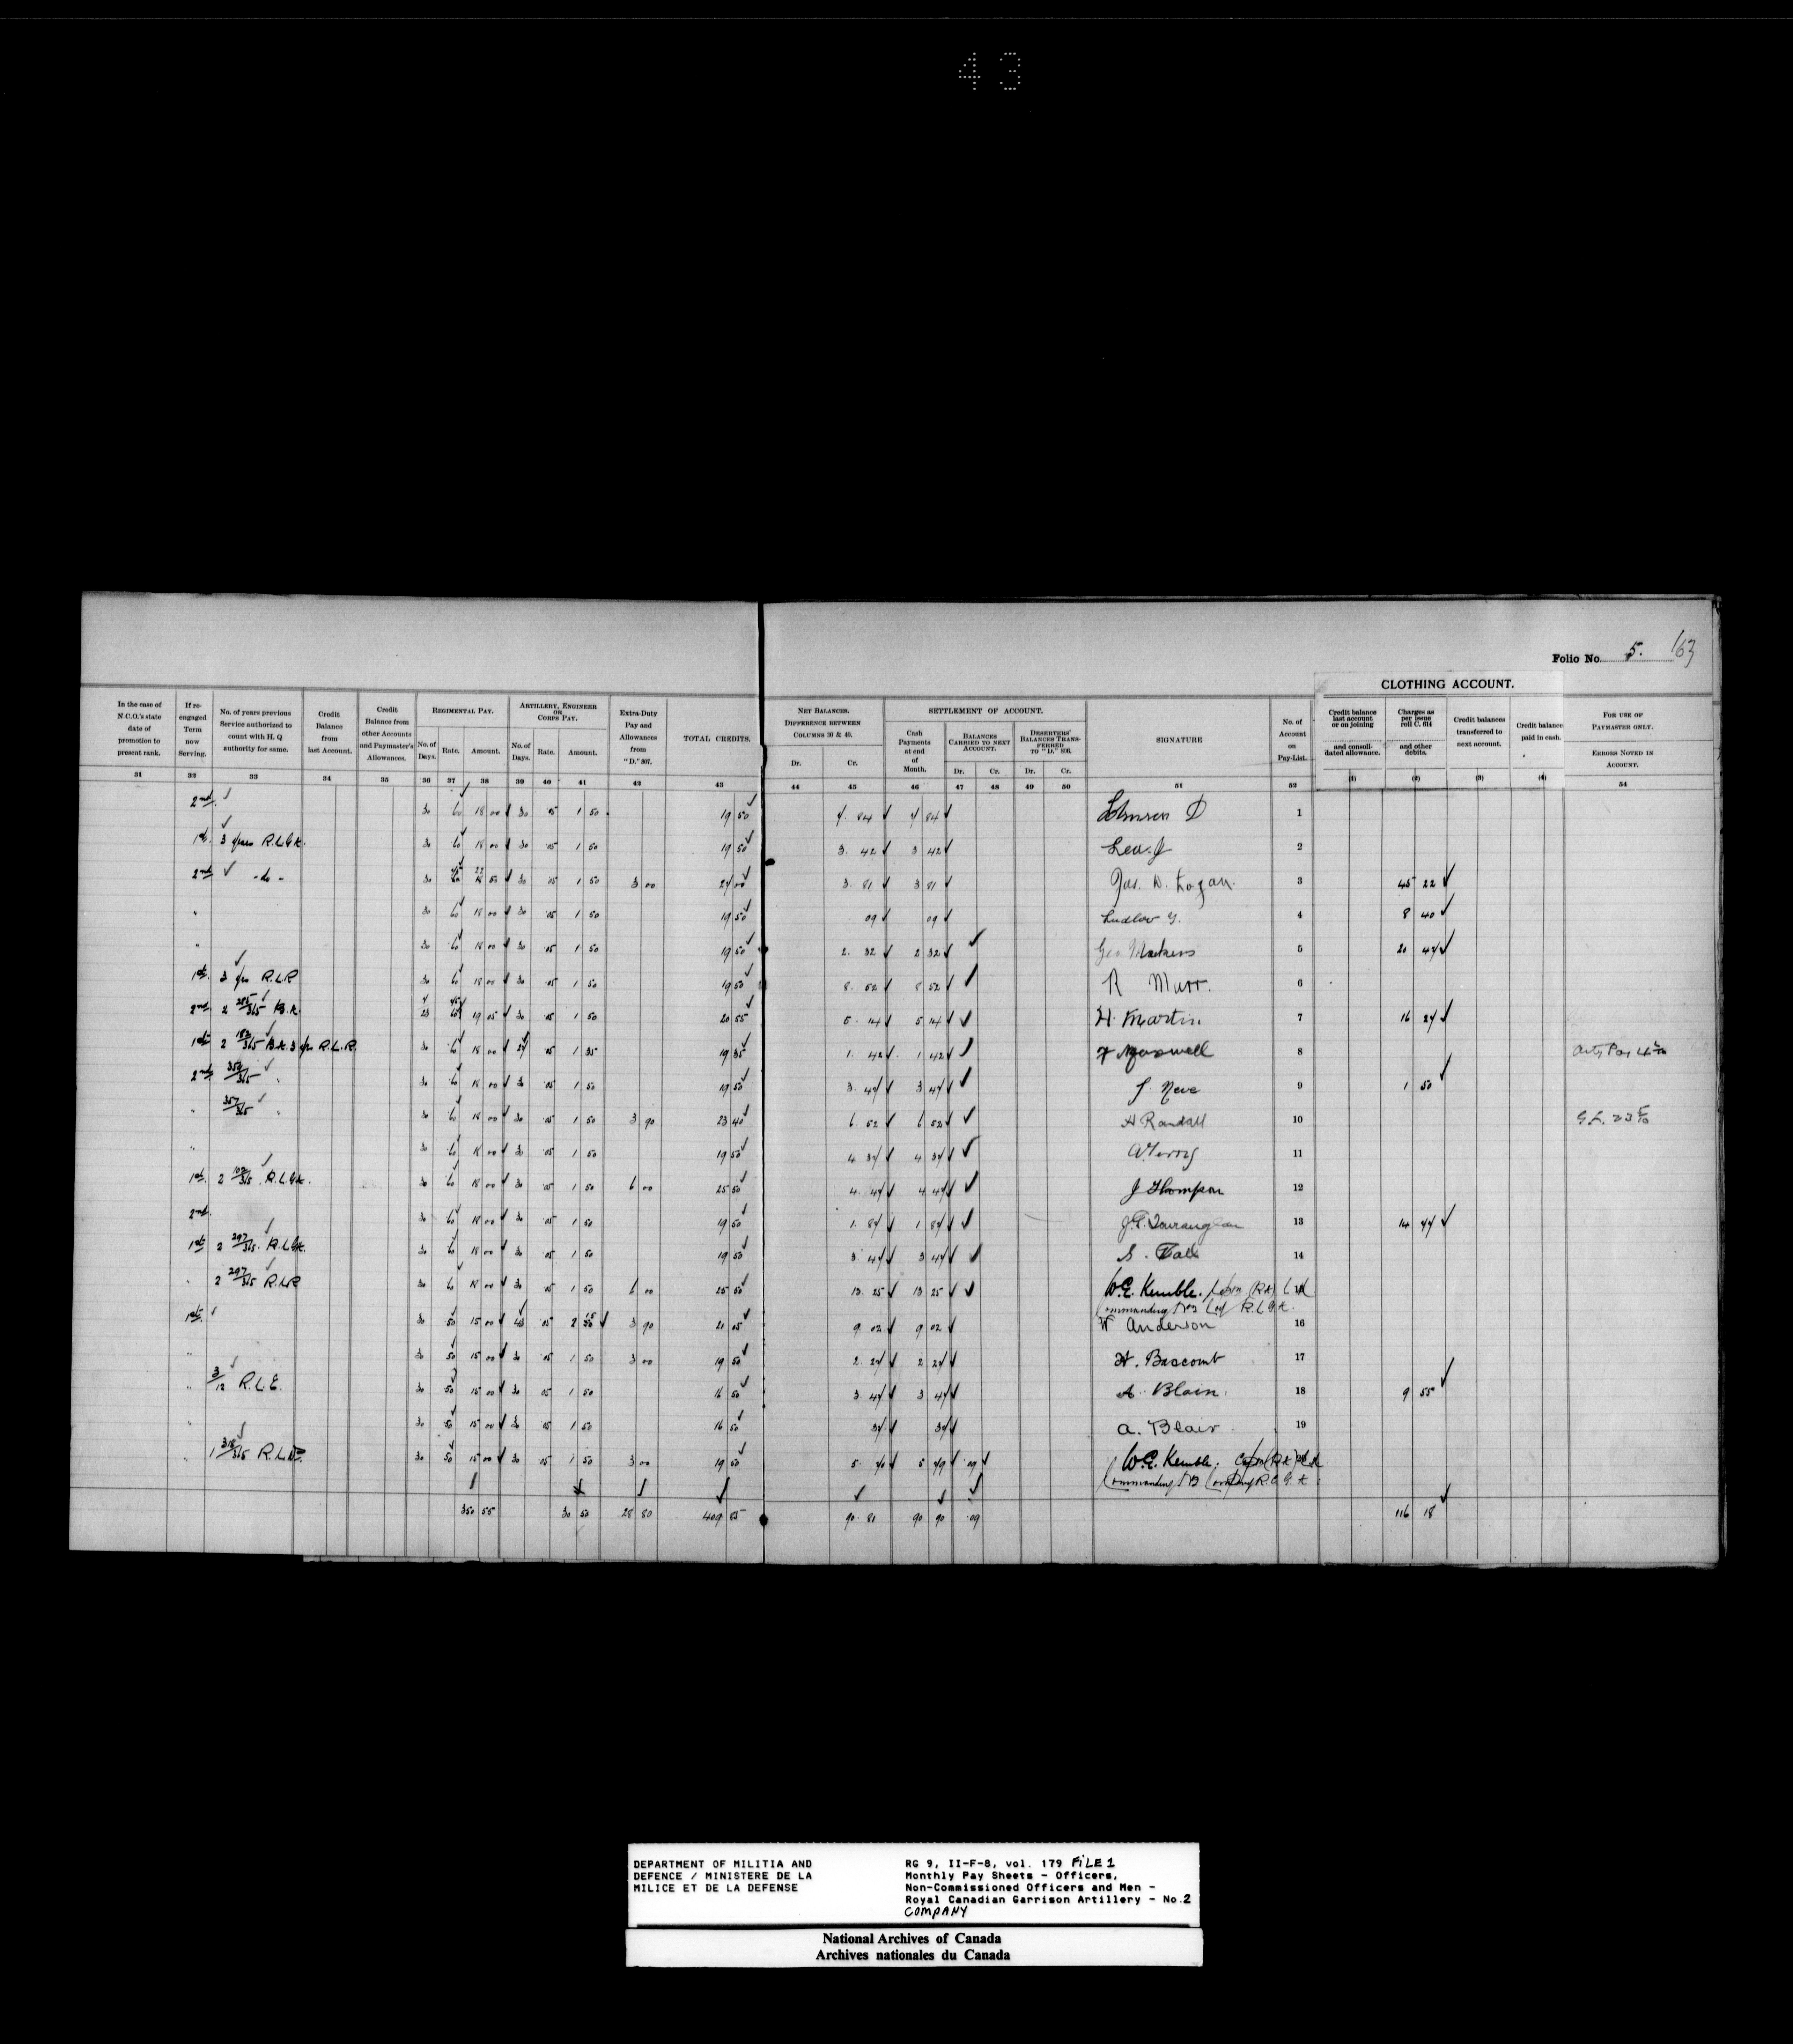 43
Folio No. 5. 163
CLOTHING ACCOUNT.
In the case of N.C.O.'s state date of promotion to present rank.
If re-engaged Term now Serving.
No. of years previous Service authorized to count with H. Q authority for same.
Credit Balance from last Account.
Credit Balance from other Accounts and Paymaster's Allowances.
REGIMENTAL PAY.
No. of Days. Rate. Amount.
ARTILLERY, ENGINEER OR CORPS PAY.
No. of Days. Rate. Amount.
Extra-Duty Pay and Allowances from "D." 807.
TOTAL CREDITS.
NET BALANCES. DIFFERENCE BETWEEN COLUMNS 30 & 43.
Dr. Cr.
SETTLEMENT OF ACCOUNT.
Cash Payments at end of Month.
BALANCES CARRIED TO NEXT ACCOUNT.
Dr. Cr.
DESERTERS' BALANCES TRANSFERRED TO "D."
Dr. Cr.
SIGNATURE
No. of Account on Pay-List.
Credit balance last account or on joining and consolidated allowance.
Charges as per Issue roll C. 614 and other debits.
Credit balances transferred to next account.
Credit balance paid in cash.
FOR USE OF PAYMASTER ONLY.
ERRORS NOTED IN ACCOUNT.
31 32 33 34 35 36 37 38 39 40 41 42 43 44 45 46 47 48 49 50 51 52 (1) (2) (3) (4) 54
2nd 30 60 18 00 30 05 1 50 19 50 4 84 4 84 Johnson D 1
1st 3 years R.C.G.A. 30 60 18 00 30 05 1 50 19 50 3 42 3 42 Lea. J 2
2nd - do - 30 30 05 1 50 3 00 3 81 3 81 Jas. D. Logan 3 45 22
" 30 60 18 00 30 05 1 50 19 50 09 09 Ludlow G. 4 8 40
" 30 60 18 00 30 05 1 50 19 50 2 32 2 32 Geo 5 20 44
1st 3 yrs R.C.R 30 60 18 00 30 05 1 50 19 50 8 52 8 52 R Marr. 6
2nd 2 19 05 30 05 1 50 20 55 5 14 5 14 H. Martin 7 16 24
1st 2 30 60 18 00 27 05 1 35 19 35 1 42 1 42 F Maxwell 8
2nd 30 60 18 00 30 05 1 50 19 50 3 44 3 44 J. Neve 9 1 50
" 357/365 30 60 18 00 30 05 1 50 3 90 23 40 6 52 6 52 H Randall 10
" 30 60 18 00 30 05 1 50 19 50 4 34 4 34 11
1st 2 R.C.G.A. 30 60 18 00 30 05 1 50 6 00 25 50 4 44 4 44 J Thompson 12
2nd 30 60 18 00 30 05 1 50 19 50 1 84 1 84 J.E. Tourangeau 13 14 44
1st 2 297/365 R.C.G.A. 30 60 18 00 30 05 1 50 19 50 3 44 3 44 14
" 2 297/365 R.C.R 30 60 18 00 30 05 1 50 6 00 25 50 13 25 13 25 W.E. Kemble. Capn (RA)
Commanding No 2 Coy R.C.G.A.
1st 30 50 15 00 05 3 90 21 05 9 02 9 02 W Anderson 16
" 30 50 15 00 30 05 1 50 3 00 19 50 2 24 2 24 H. Bascomb 17
" 3/12 R.C.E. 30 50 15 00 30 05 1 50 16 50 3 44 3 44 A. Blain 18 9 55
" 30 50 15 00 30 05 1 50 16 50 34 34 A. Blair 19
" 1 R.C.R. 30 50 15 00 30 05 1 50 3 00 19 50 5 40 5 49 09 W.E. Kemble. Capn (RA)
Commanding No 2 Company R.C.G.A.
350 55 30 50 28 80 409 85 90 81 90 90 09 116 18
DEPARTMENT OF MILITIA AND
DEFENCE / MINISTERE DE LA
MILICE ET DE LA DEFENSE
RG 9, II-F-8, vol. 179 FILE 1
Monthly Pay Sheets - Officers,
Non-Commissioned Officers and Men -
Royal Canadian Garrison Artillery - No.2
COMPANY
National Archives of Canada
Archives nationales du Canada